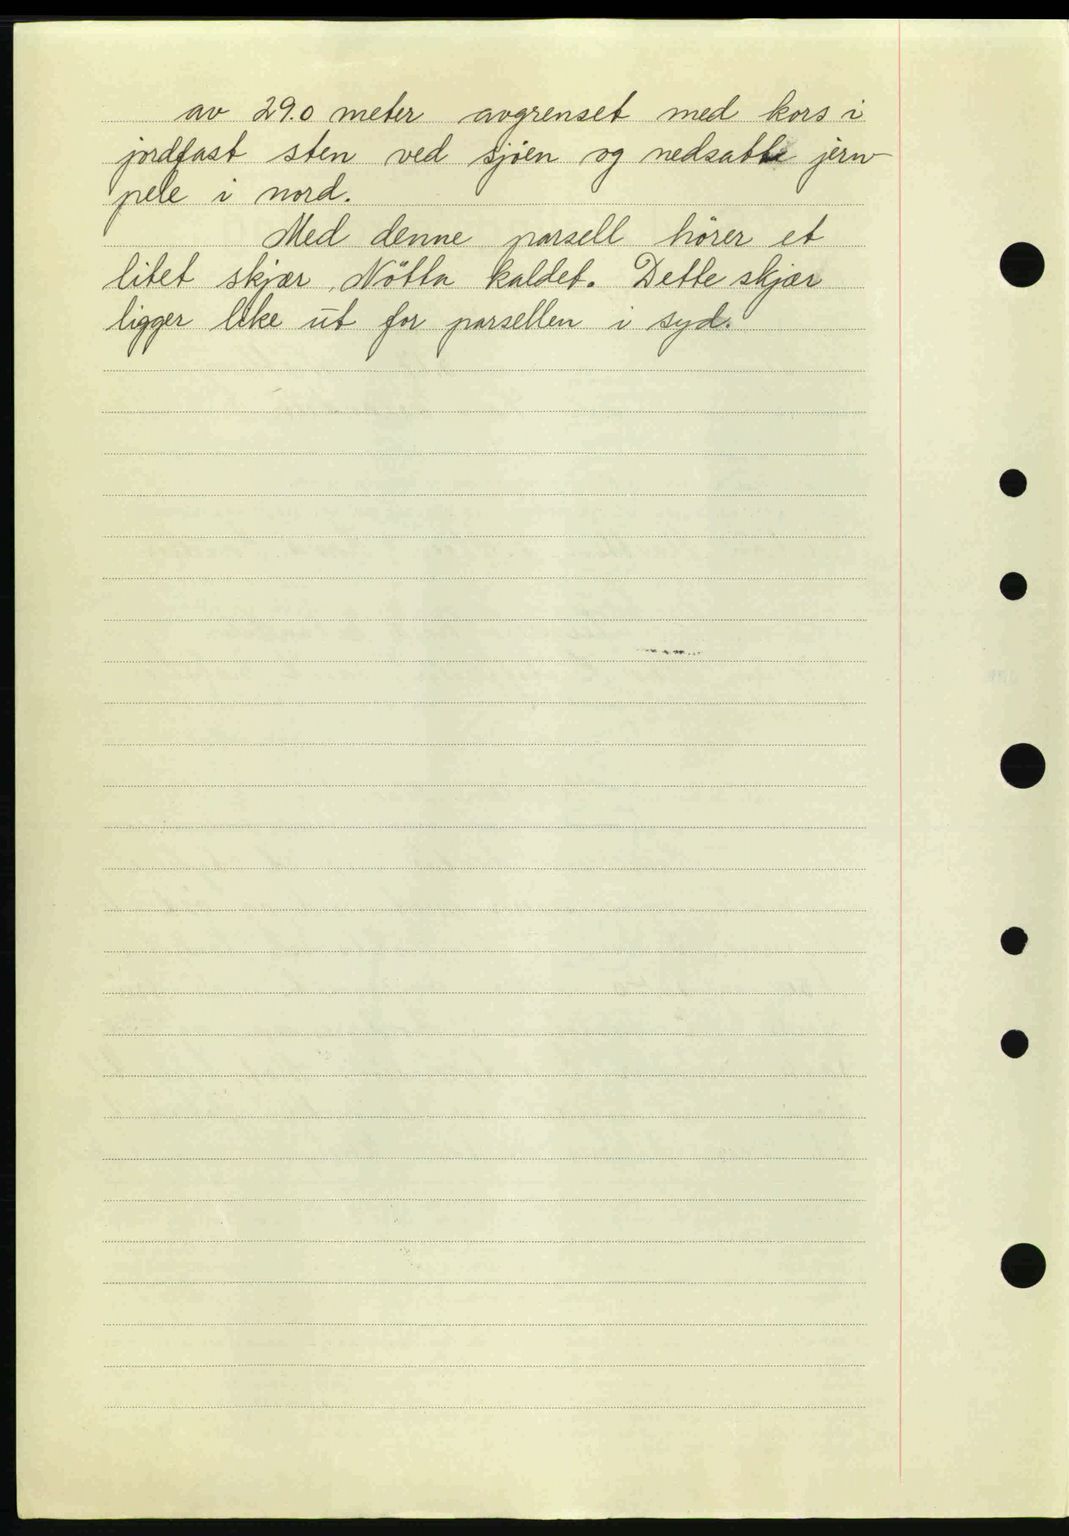 av 29.0 meter avgrenset med kors i
jordfast sten ved sjöen og nedsatte jern
pele i nord.
Med denne parsell hörer et
litet skjær, Nötta kaldet. Dette skjær
ligger like ut for parsellen i syd.